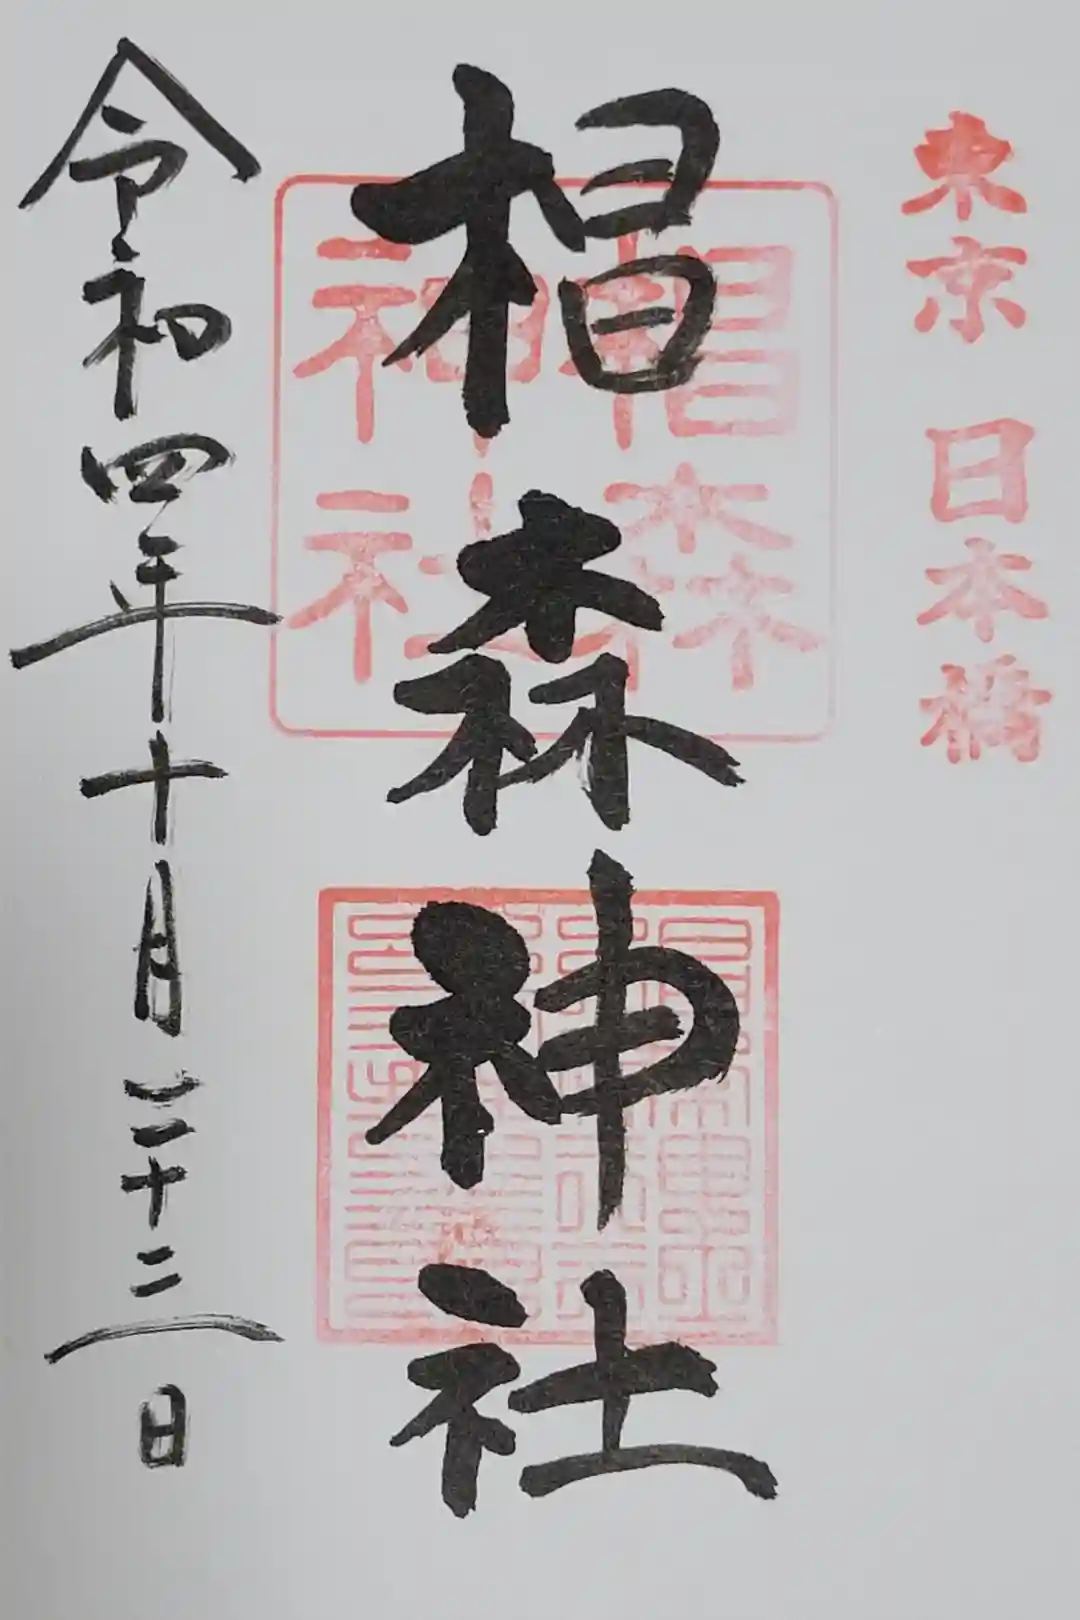 東京 日本橋
椙森神社
椙森
神社
令和四年十月二十三日